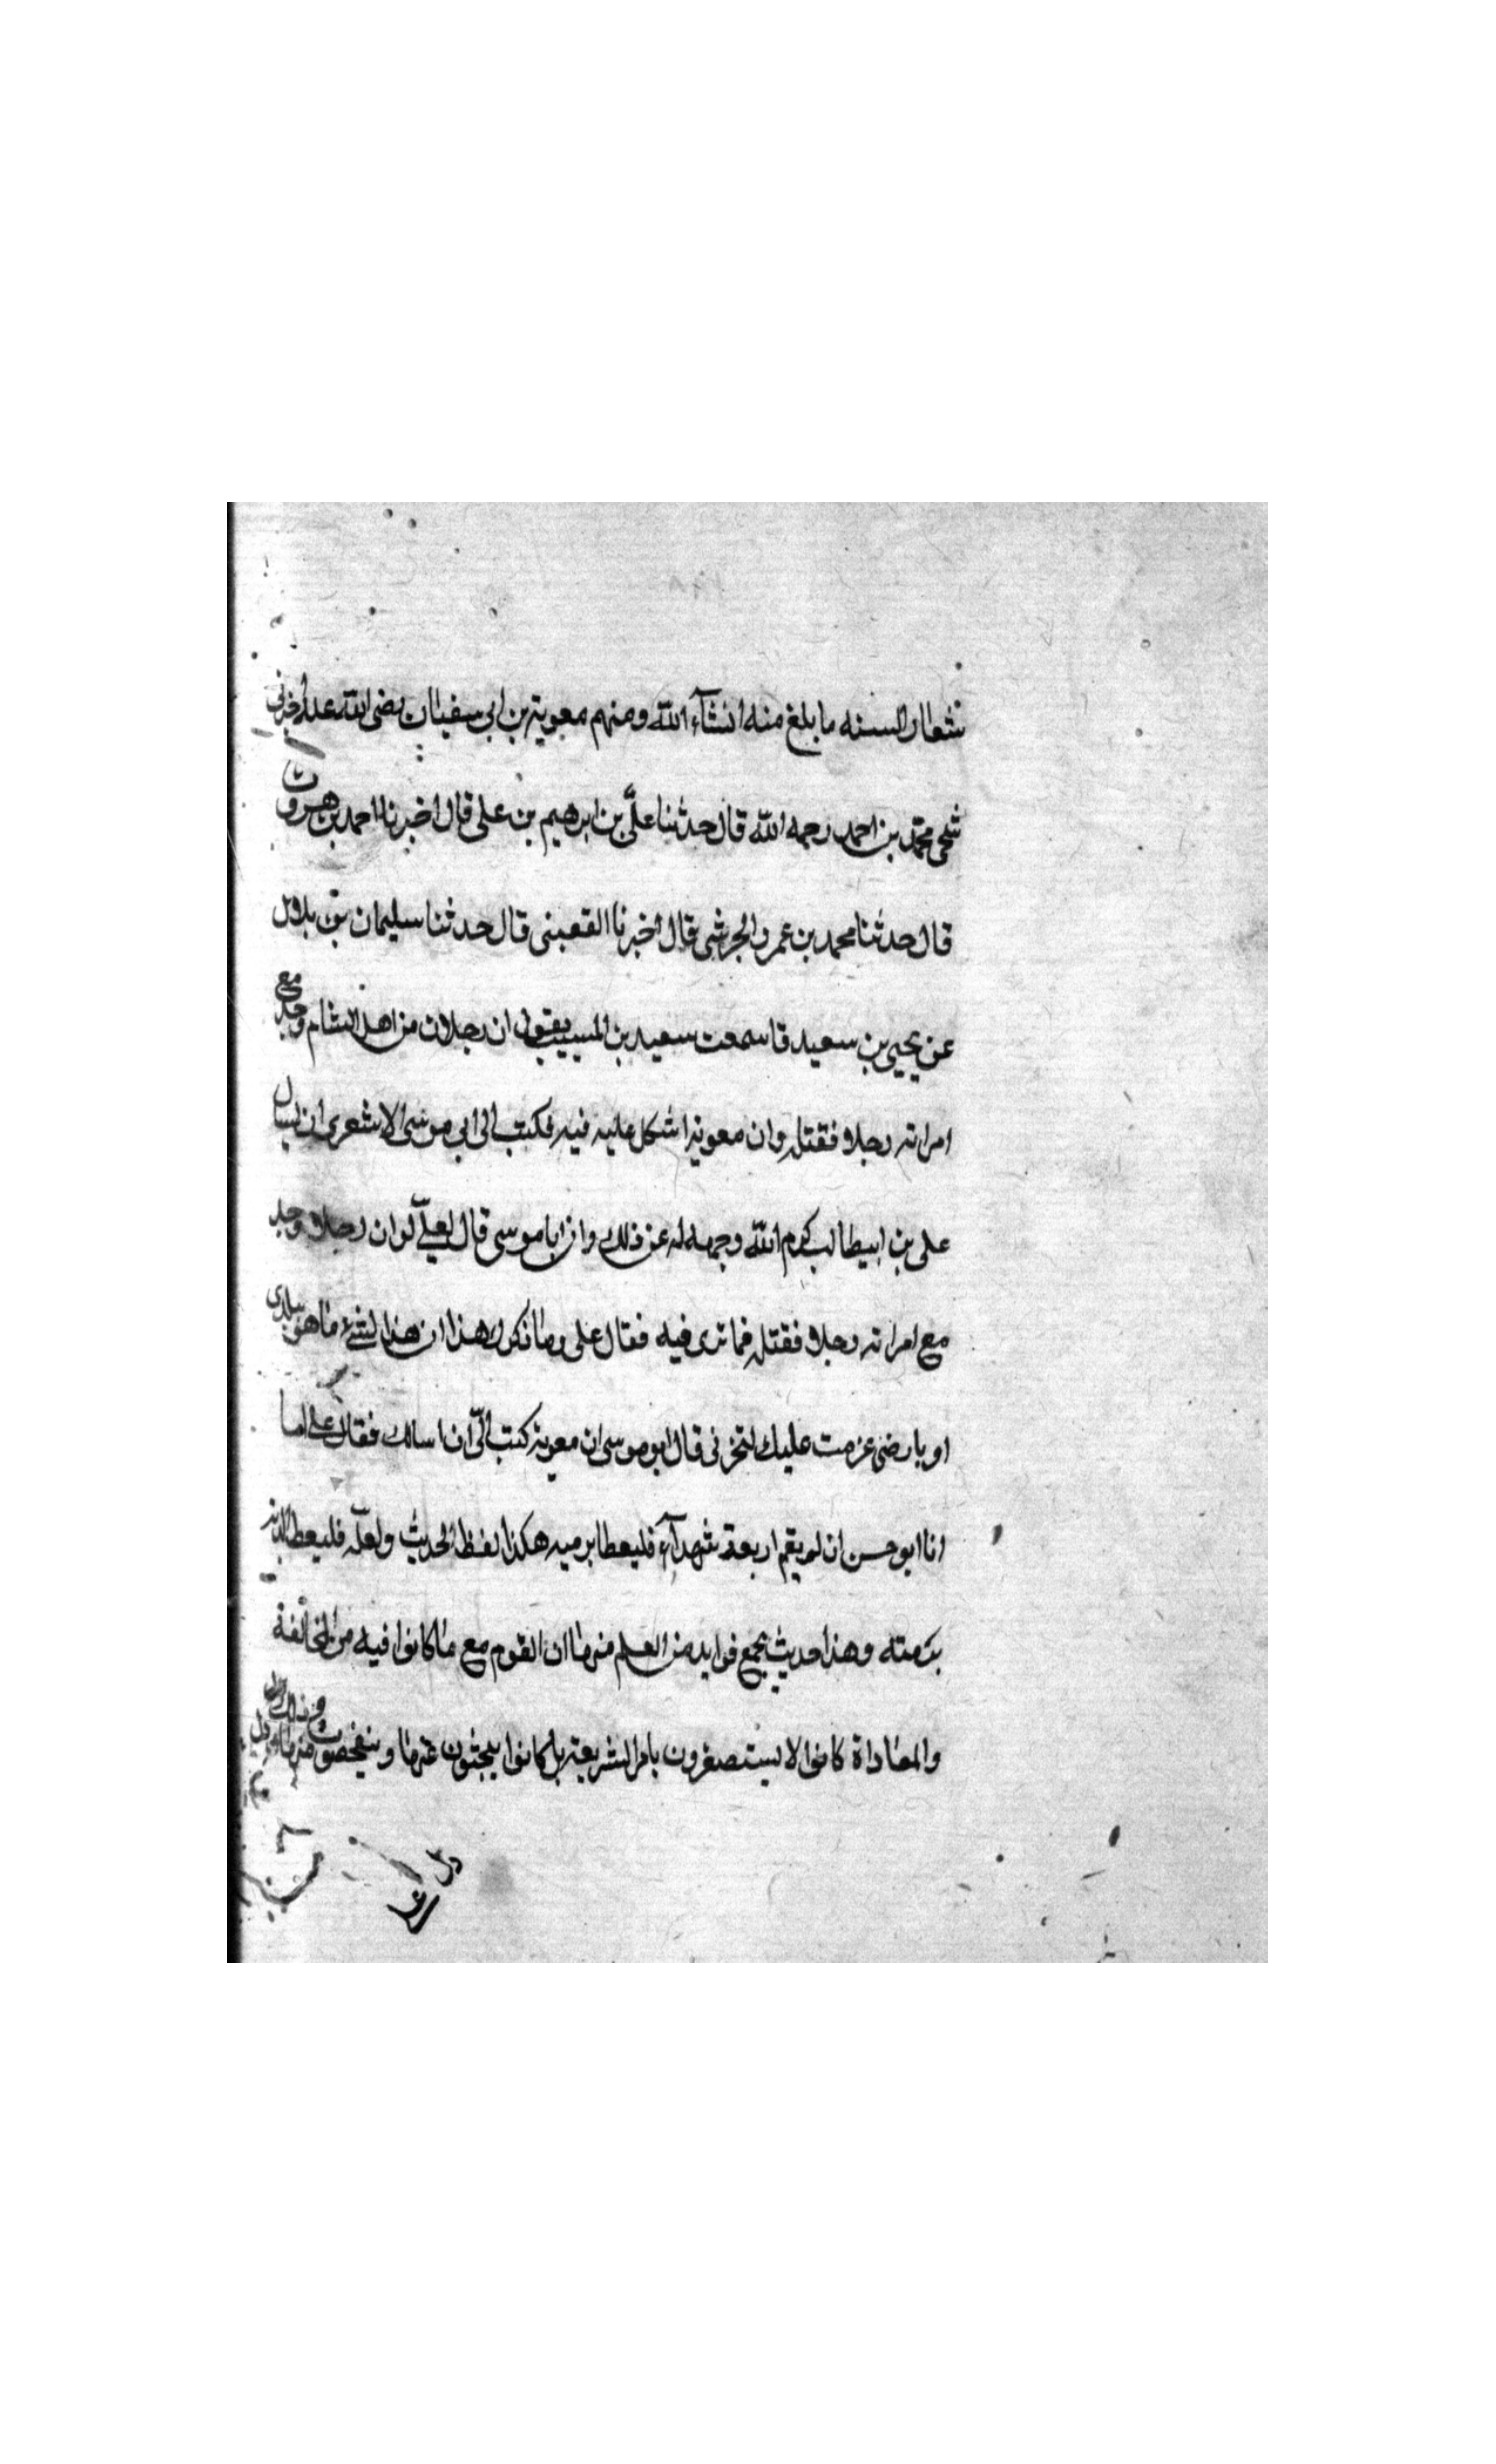 شطار السنه ما بلغ منه انشآء الله ومنهم معوية بن ابي سفيان رضى الله عنه أخبرني
شيخي محمد بن احمد رحمه الله قال حدثنا علي بن ابرهيم بن على قال اخبرنا احمد بن هرون
قال حدثنا محمد بن عمرو الجرشي قال اخبرنا القعبنى قال حدثنا سليمان بن بلال
عن يحيى بن سعيد قا سمعت سعيد بن المسيب يقول ان رجلا من اهل الشام وجد مع
امراته رجلا فقتله وان معوية اشكل عليه فيه فكتب الى ابي موسى الاشعرى ان يسال
على بن ابيطالب كرم الله وجهه له عن ذلك وان ابا موسى قال لعلي لو ان رجلا وجد
مع امراته رجلا فقتله فما ترى فيه فقال على وما ذكرك هذا ان هذا لشئ ما هو ببلدى
او بارضى عزمت عليك لتخبرنى قال ابو موسى ان معوية كتب الىّ ان اسالك فقال على اما
انا ابو حسن ان لم يقم اربعة شهدآء فليعطا برميه هكذا لفظ الحديث ولعله فليعطا الدية
برمته وهذا حديث يجمع فوايد من العلم منها ان القوم مع ما كانوا فيه من المخالفة
والمعاداة كانوا لا يستصغرون بامر الشريعة بل كانوا يبحثون عنها ويتفحصون منها